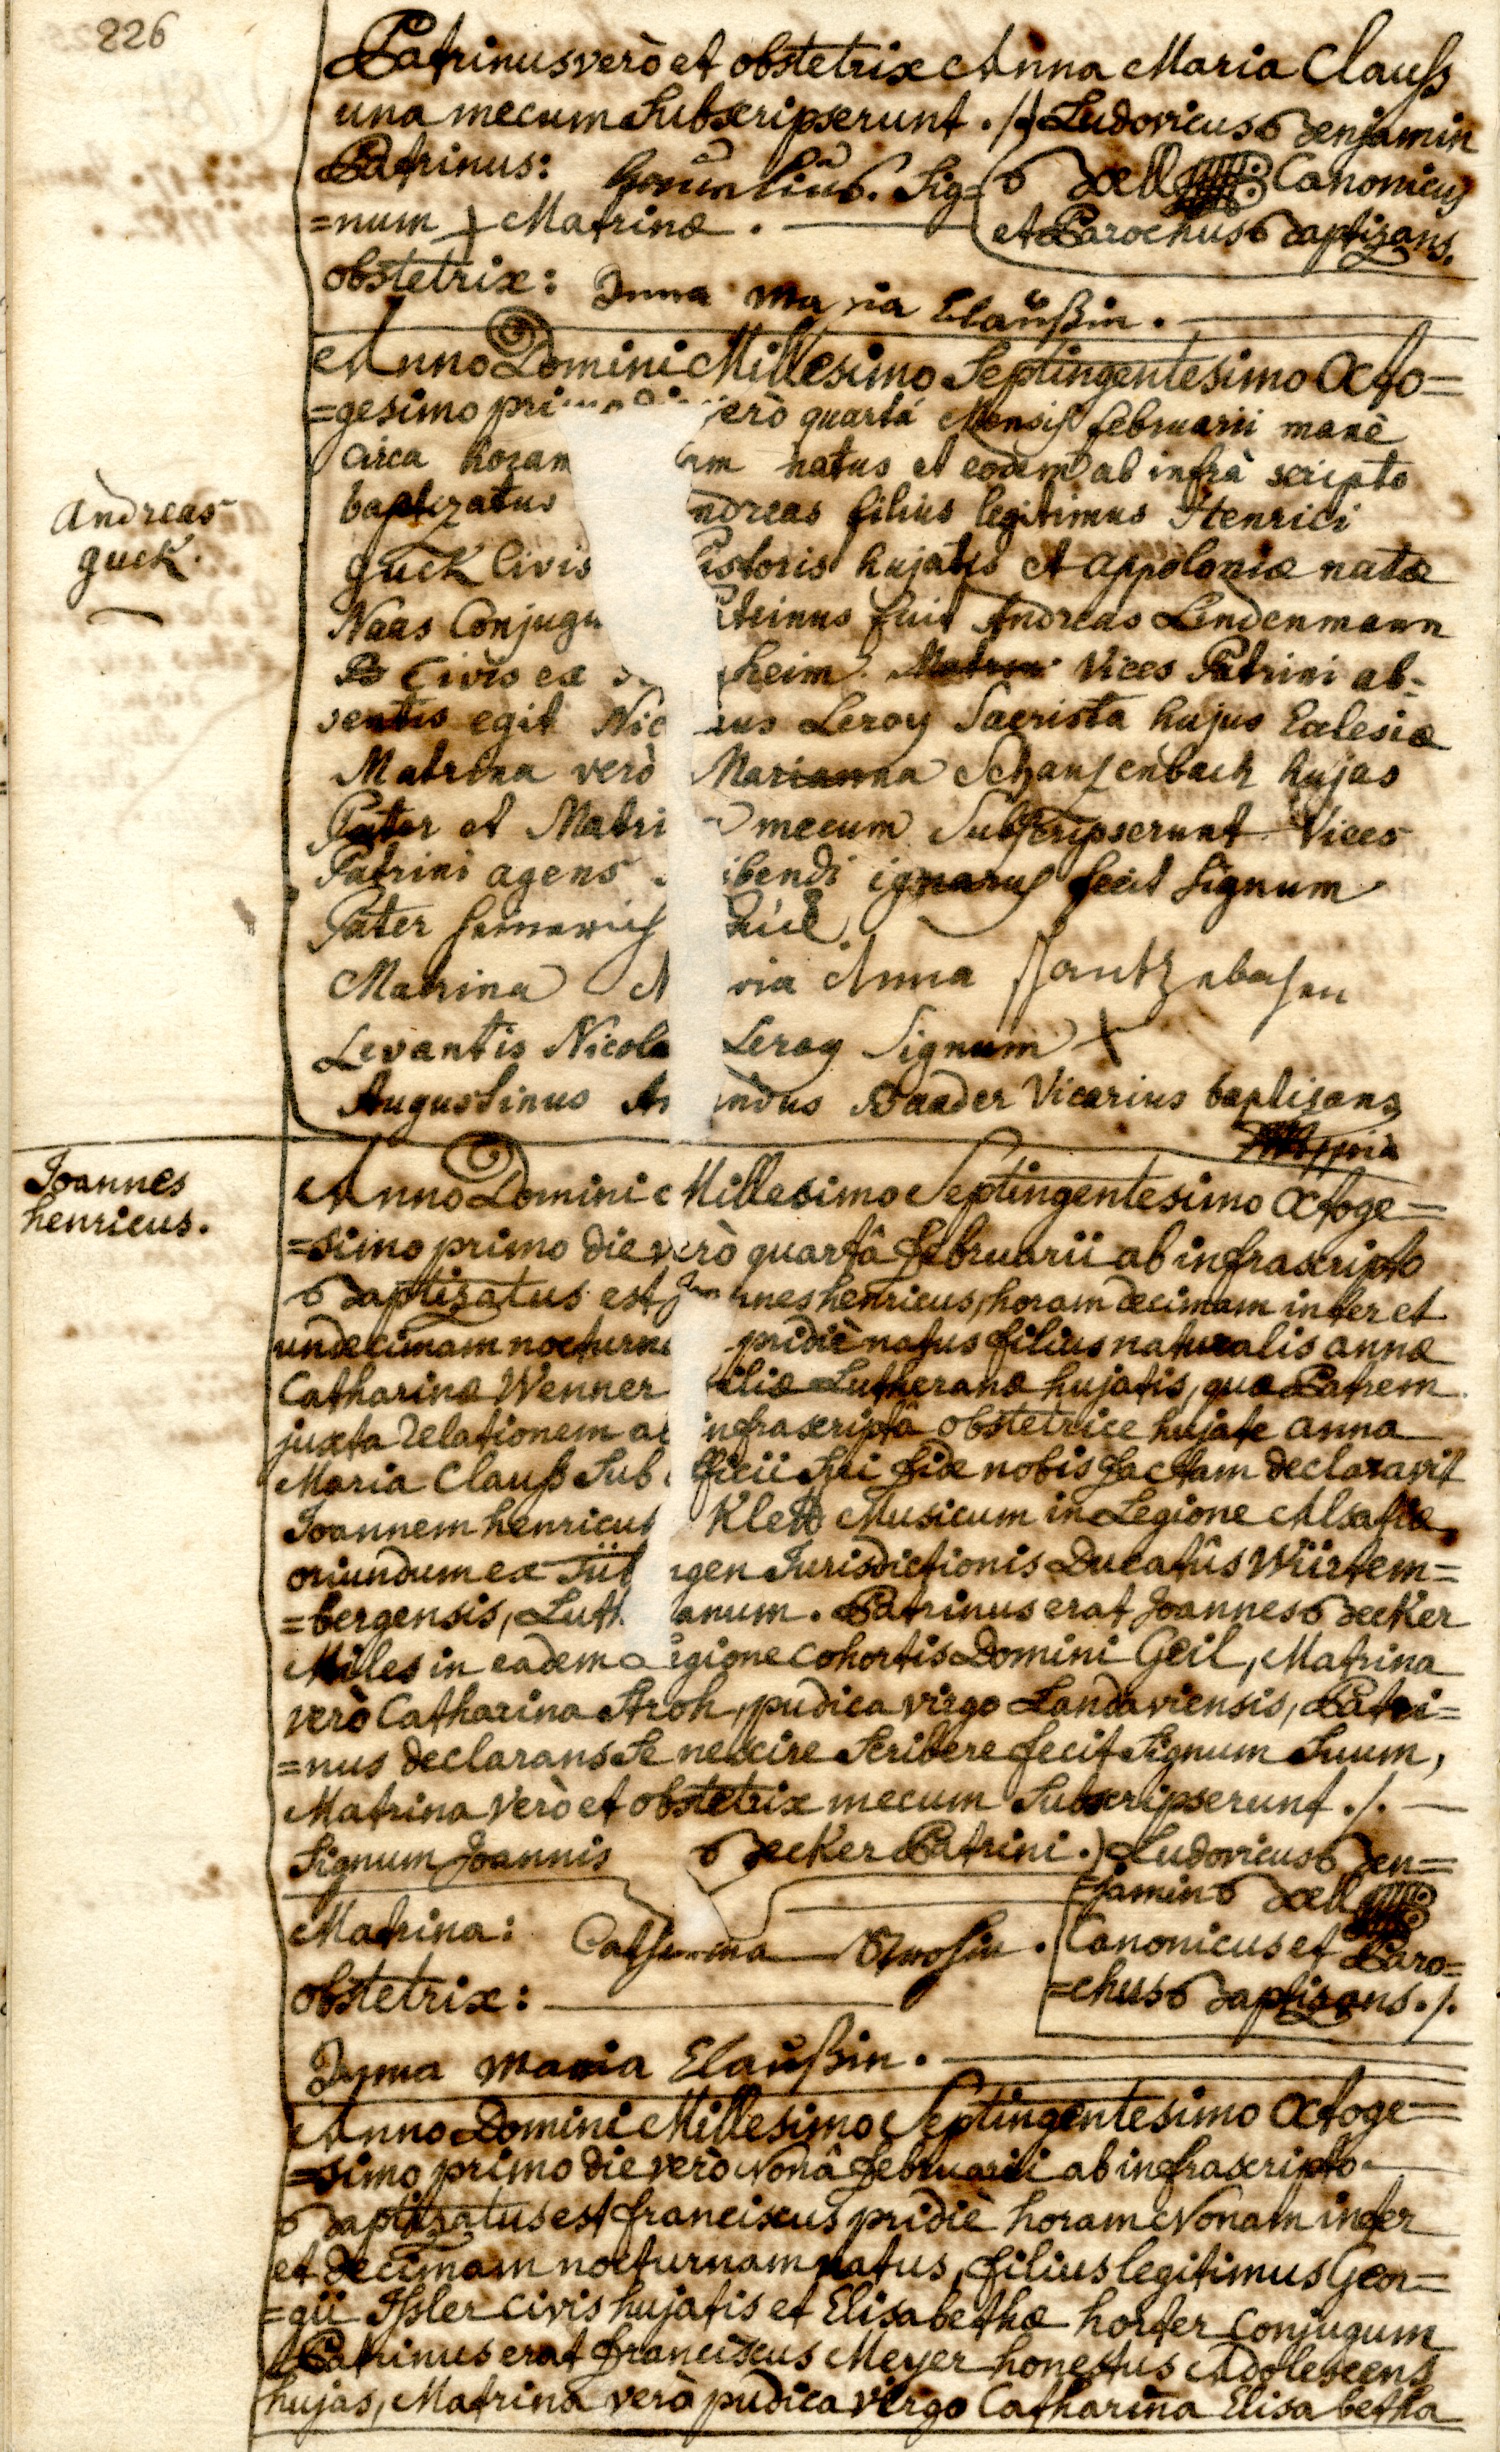 226
Patrinus verò et obstetrix Anna Maria Clauß
una mecum Subscripserunt ./. Ludovicus Benjamin
Patrinus: Sig= Bell Canonicus
=num + Matrinæ. et Parochus Baptizans.
obstetrix: Anna maria Claußin.
Anno Domini Millesimo Septingentesimo Octo=
=gesimo pri erò quartâ Mensis februarii manè
circa horam am natus et eodem ab infrà scripto
baptizatus ndreas filius legitimus Henrici
guck Civis istoris hujatis et appoloniæ natæ
Andreas
guck.
Naas Conjugu trinus fuit Andreas Lindenmann
Civis ex heim. Vices Patrini ab=
sentis egit Nic us Leroy Sacrista hujus Ecclesiæ
Matrina verò Marianna Schanzenbach hujas
Pater et Matri mecum Subscripserunt Vices
Patrini agens ibendi ignarus fecit Signum
Pater
Matrina ria Anna
Levantis Nicola Leroy Signum X
Augustinus Ar ndus Baader Vicarius baptisans
Joannes
henricus.
Anno Domini Millesimo Septingentesimo Octoge=
=simo primo die verò quartâ februarii ab infrascripto
Baptizatus est Joannes henricus, horam decimam inter et
undecimam nocturna pridiè natus filius naturalis annæ
Catharinæ Wenner filiæ Lutheranæ hujatis, quæ Patrem
juxta relationem ab infrascriptâ obstetrice hujate anna
Maria Clauß Sub officii Sui fide nobis factam declaravit
Joannem henricum Klett Musicum in Legione Alsatiæ,
oriundum ex Tüb ngen Jurisdictionis Ducatûs Würtem=
=bergensis, Luth anum. Patrinus erat Joannes Becker
Miles in eadem Legione cohortis Domini Geil, Matrina
verò Catharina Stroh, pudica virgo Landaviensis, Patri=
=nus declarans Se nescire Scribere fecit Signum Suum,
Matrina verò et obstetrix mecum Subscripserunt ./.
Signum Joannis Becker Patrini. Ludovicus Ben=
=jamin Bell
Matrina: Catharina Strohin. Canonicus et Paro=
obstetrix: =chus Baptizans ./.
Anna maria Claußin.
Anno Domini Millesimo Septingentesimo Octoge=
=simo primo die verò Nonâ februarii ab infrascripto
Baptizatus est franciscus pridiè horam Nonam inter
et decimam nocturnam natus, filius legitimus Geor=
=gii Ißler civis hujatis et Elisabethæ horter conjugum
Patrinus erat franciscus Meyer honestus Adolescens
hujas, Matrina verò pudica virgo Catharina Elisabetha